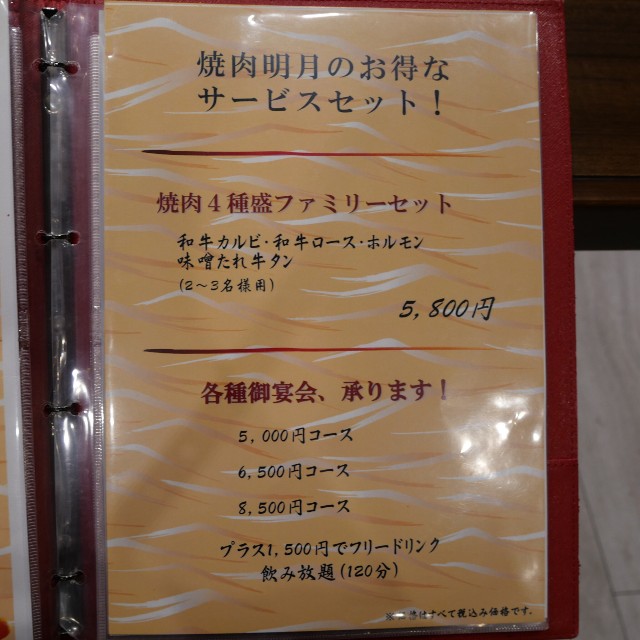 焼肉明月のお得な
サービスセット！
焼肉４種盛ファミリーセット
和牛カルビ・和牛ロース・ホルモン
味噌たれ牛タン
(2～3名様用)
5,800円
各種御宴会、承ります！
5,000円コース
6,500円コース
8,500円コース
プラス1,500円でフリードリンク
飲み放題(120分)
はすべて税込み価格です。